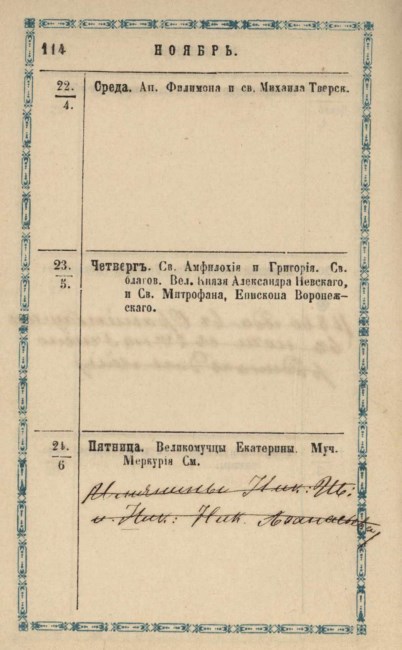 114 НОЯБРЬ.
22.
4.
Среда. Ап. Филимона и св. Михаила Тверск.
23.
5.
Четвергъ. Св. Амфилохія и Григорія. Св.
благов. Вел. Князя Александра Невскаго,
и Св. Митрофана, Епископа Воронеж-
скаго.
24.
6
Пятница. Великомучцы Екатерины. Муч.
Меркурія См.
Имянины Ник:
и Ник: Ник.